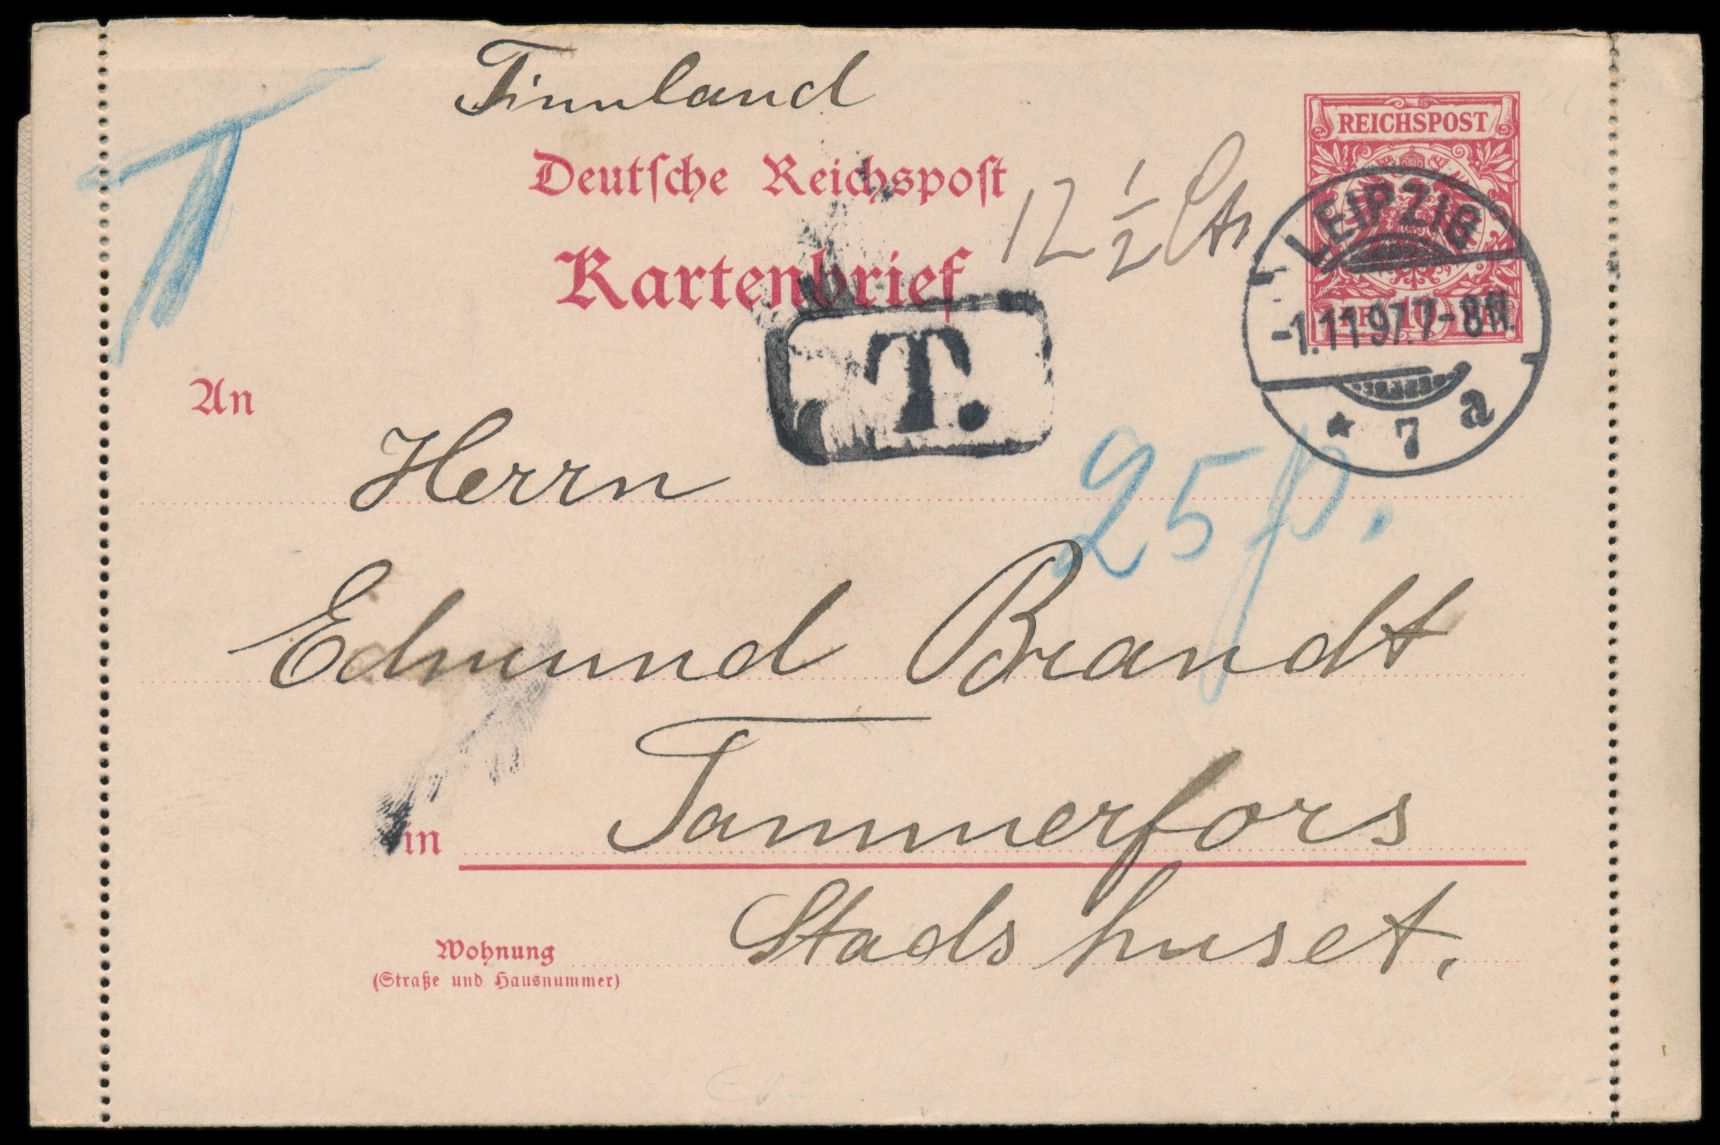 Finnland
Deutsche Reichspost
Kartenbrief
REICHSPOST
LEIPZIG
-1.11.97.7-8N.
* 7 a
T
12 1/2 Cts
T.
An
Herrn
25 p.
Edmund Brandt
in Tammerfors
Stadshuset.
Wohnung
(Straße und Hausnummer)